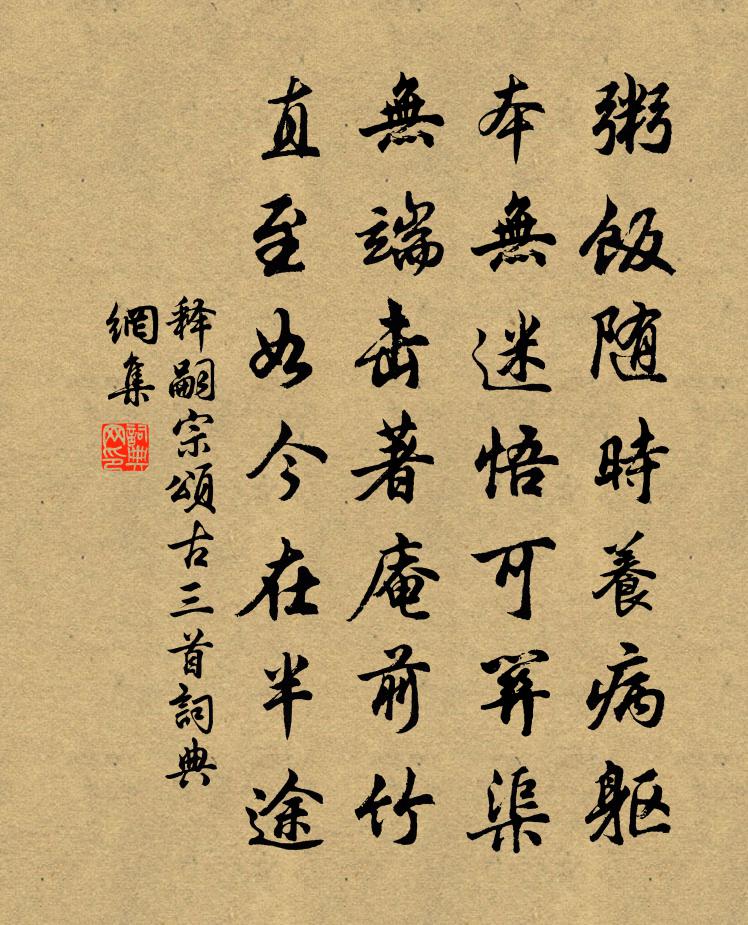 粥飯随時養病躯
本無迷悟可關渠
無端击著庵前竹
直至如今在半途
释嗣宗頌古三首詞典
網集
詞典
网印